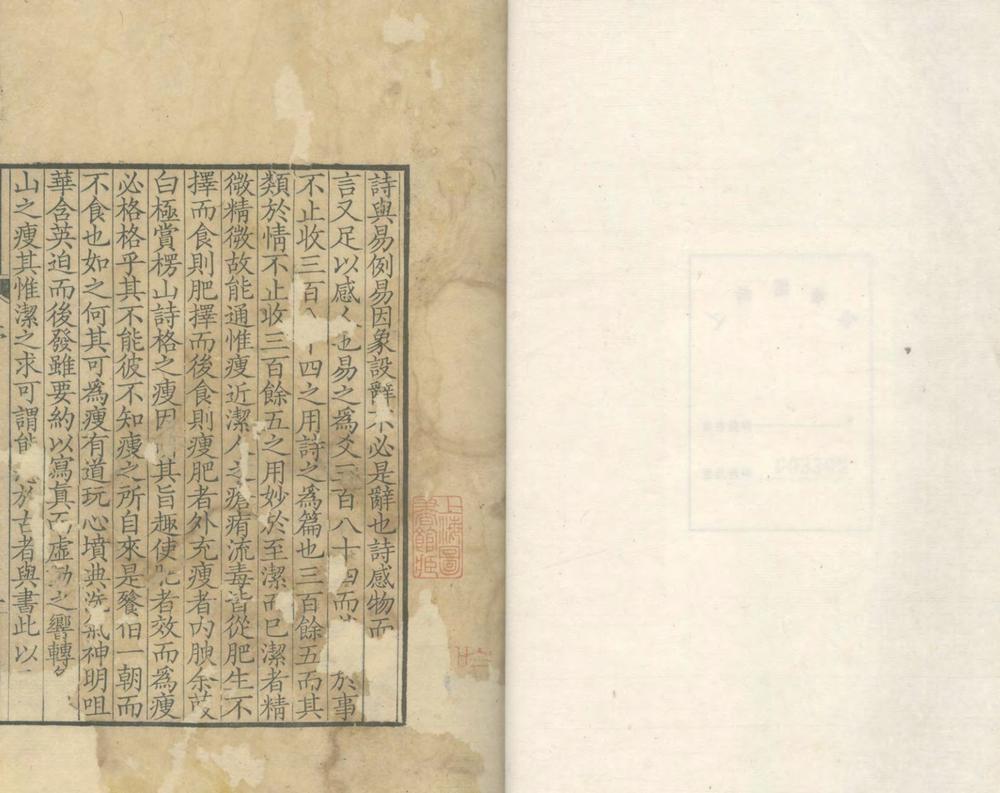 詩與易例易因象設辭不必是辭也詩感物而
言又足以感人也易之爲爻三百八十四而 於事
不止收三百八十四之用詩之爲篇也三百餘五而其
類於情不止收三百餘五之用妙於至潔而已潔者精
微精微故能通惟瘦近潔人之瘡痏流毒皆從肥生不
擇而食則肥擇而後食則瘦肥者外充瘦者內腴余
白極賞楞山詩格之瘦因 其旨趣使肥者效而爲瘦
必格格乎其不能彼不知瘦之所自來是餐 一朝而
不食也如之何其可爲瘦有道玩心墳典 氣神明咀
華含英迫而後發雖要約以寫真而虛 之響轉
山之瘦其惟潔之求可謂能 於古者與書此以
上海圖書館藏